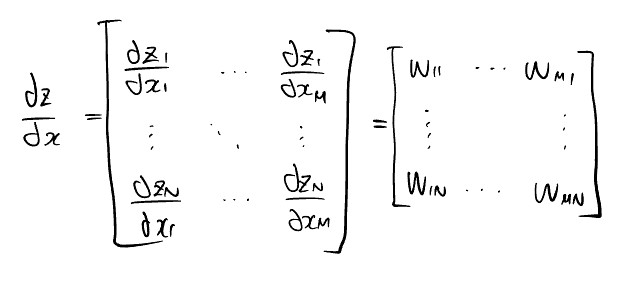 $$\frac{\partial z}{\partial x} = \begin{bmatrix} \frac{\partial z_1}{\partial x_1} & \cdots & \frac{\partial z_1}{\partial x_M} \\ \vdots & \ddots & \vdots \\ \frac{\partial z_N}{\partial x_1} & \cdots & \frac{\partial z_N}{\partial x_M} \end{bmatrix} = \begin{bmatrix} W_{11} & \cdots & W_{M1} \\ \vdots & & \vdots \\ W_{1N} & \cdots & W_{MN} \end{bmatrix}$$